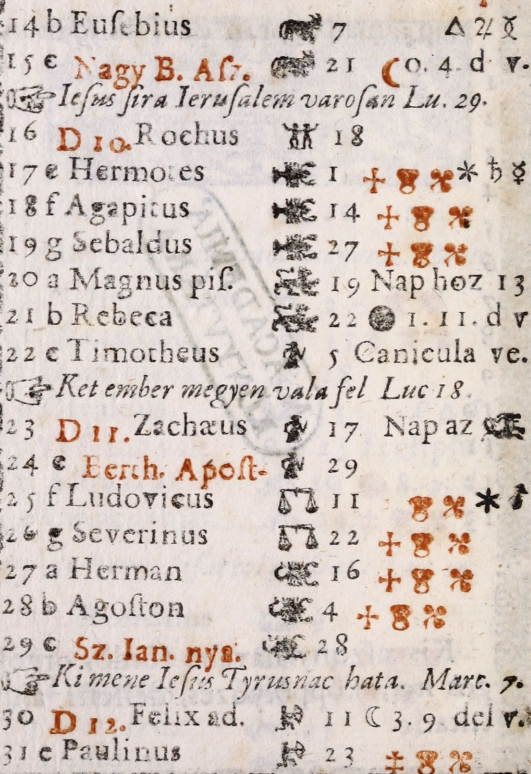 14 b Euſebius 7 △ ♃ ☿
15 c Nagy B. Aſz. 21 ☾ 0. 4. d v.
Ieſus ſira Ieruſalem varoſan Lu. 29.
16 D 10. Rochus 18
17 e Hermotes 1 ✶ ♄ ☿
18 f Agapitus 14
19 g Sebaldus 27
20 a Magnus piſ. 19 Nap hoz 13
21 b Rebeca 22 1. 11. d v
22 c Timotheus 5 Canicula ve.
Ket ember megyen vala fel Luc 18.
23 D 11. Zachæus 17 Nap az
24 e Berth. Apoſt- 29
25 f Ludovicus 11 ✶
26 g Severinus 22
27 a Herman 16
28 b Agoſton 4
29 c Sz. Ian. nya. 28
Ki mene Ieſus Tyrusnac hata. Marc. 7.
30 D 12. Felix ad. 11 ☾ 3. 9 del v.
31 e Paulinus 23